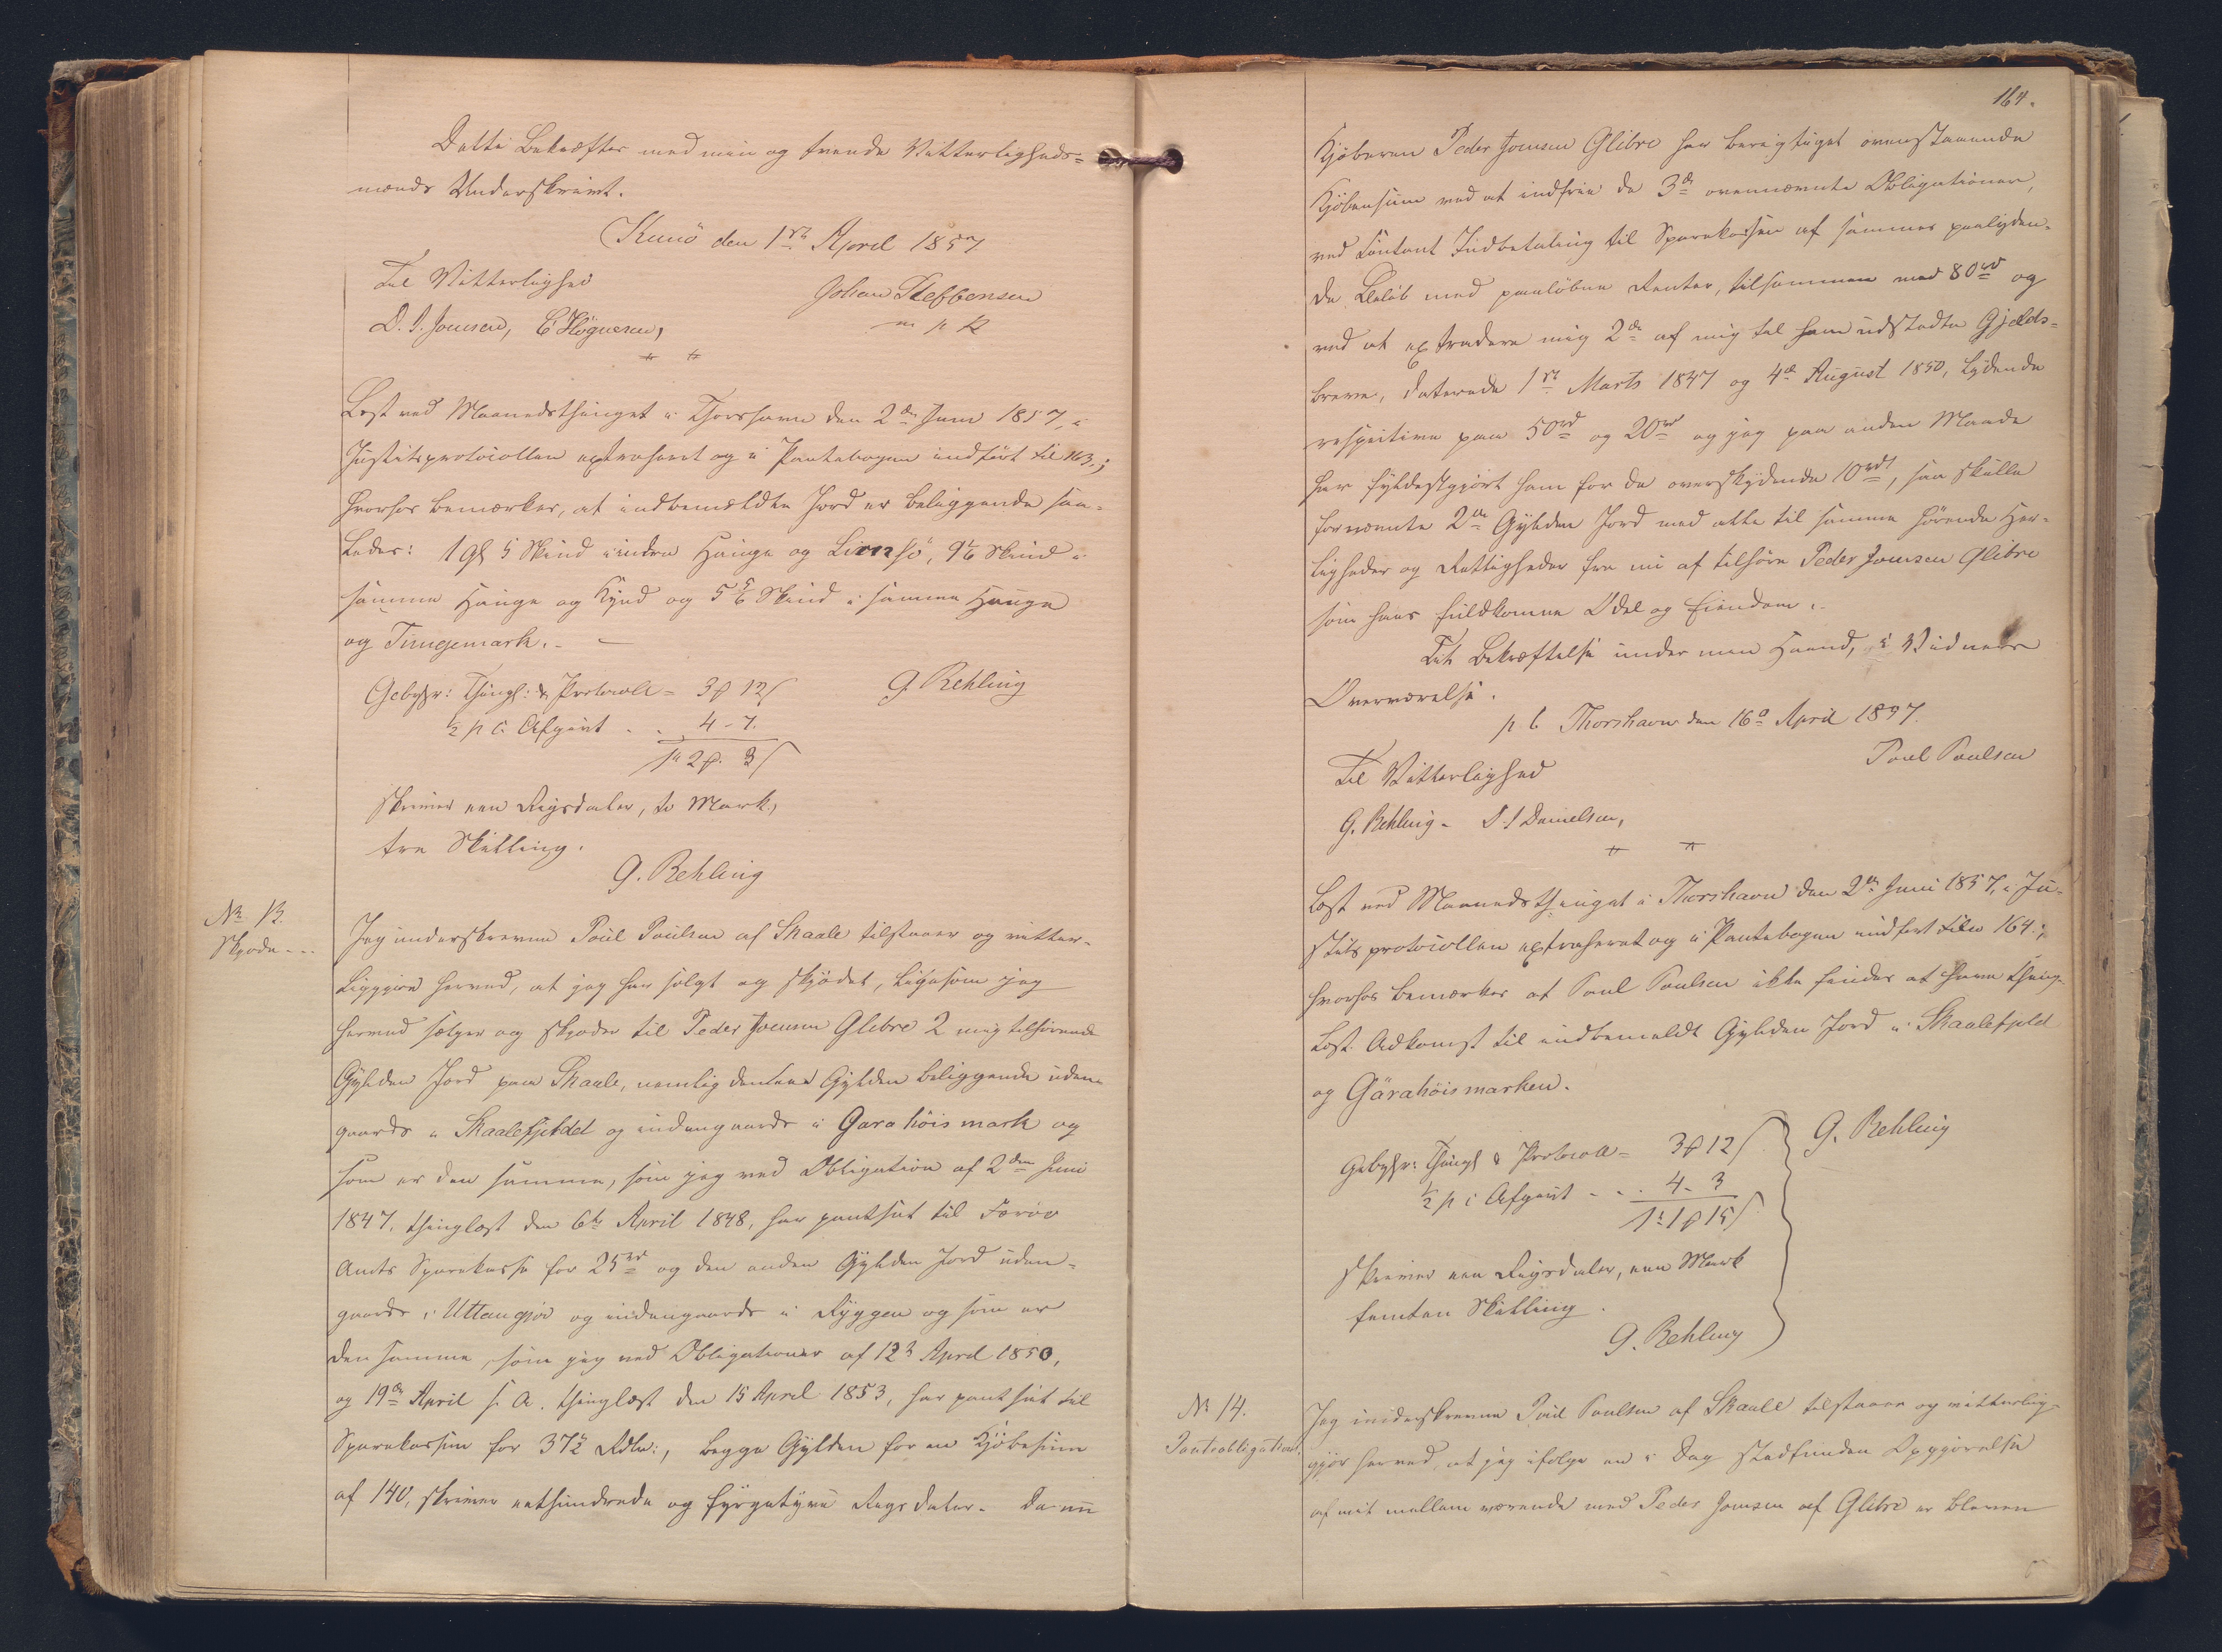 Dette Bekræftes med min og tvende Vitterligheds=
mænds Underskrivt.
Kunö den 1ste April 1857
Til Vitterlighed
Johan Steffensen
D. J. Joensen, E Högnesen,
m p R
Læst ved Maanedsthinget i Thorshavn den 2den Juni 1857, i
Justitsprotocollen extraheret og i Pantebogen indført Fol 163.;
hvorhos bemærkes, at indbemeldte Jord er beliggende saa-
ledes: 1 Gl 5 Skind i indre Hauge og 9 1/6 Skind i
samme Hauge og Kynd og 5 5/6 Skind i samme Hauge
og Tungemark. -
Gebyhr: Thingl: & Protocoll = 3 ₰ 12 ß
G. Rehling
½ p C. Afgivt . . 4 - 7.
1 rd 2 ₰. 3 ß
skriver een Rigsdaler, to Mark,
tre Skilling.
G. Rehling
No 13.
Skjøde ...
Jeg underskrevne Poul Poulsen af Skaale tilstaaer og vitter-
liggjør herved, at jeg har solgt og skjödet, ligesom jeg
herved sælger og skjøder til Peder Joensen Glibre 2 mig tilhørende
Gylden Jord paa Skaale, nemlig den eene Gylden beliggende uden-
gaards i Skaalefjeldet og indengaards i Garahöismark og
som er den samme, som jeg ved Obligation af 2den Juni
1847, thinglæst den 6te April 1848, har pantsat til Færøe
Amts Sparekasse for 25 rd og den anden Gylden Jord uden-
gaards i Uttangjov og indengaards i Ryggen og som er
den samme, som jeg ved Obligationer af 12te April 1850,
og 19de April s. A. thinglæst den 15 April 1853, har pantsat til
Sparekassen for 37½ Rdlr:, begge Gylden for en Kjøbesum
af 140, skriver eethundrede og fyrgetyve Rigsdaler. Da nu
164.
Kjøberen Peder Joensen Glibre har berigtiget ovenstaaende
Kjøbesum ved at indfrie de 3de ovennævnte Obligationer,
ved contant Indbetaling til Sparekassen af sammes paalyden-
de Beløb med paaløbne Renter, tilsammen med 80 rd og
ved at extradere mig 2de af mig til ham udstedte Gjelds-
breve, daterede 1ste Marts 1847 og 4de August 1850, lydende
respective paa 50 rd og 20 rd og jeg paa anden Maade
har fyldestgjort ham for de overskydende 10 rd, saa skulle
fornævnte 2de Gylden Jord med alle til samme hørende Her-
ligheder og Rettigheder fra nu af tilhøre Peder Joensen Glibre
som hans fuldkomne Odel og Eiendom.
Til Bekræftelse under min Haand, i Vidners
Overværelse.
p t Thorshavn den 16de April 1857.
Til Vitterlighed
Poul Poulsen
G. Rehling - Danielsen,
Læst ved Maanedsthinget i Thorshavn den 2den Juni 1857, i Ju-
stitsprotocollen extraheret og i Pantebogen indført Folio 164.;
hvorhos bemærkes at Poul Poulsen ikke findes at have thing-
læst Adkomst til indbemeldt Gylden Jord i Skaalefjeld
og Gärahöismarken.
Gebyhr: Thingl & Protocoll = 3 ₰ 12 ß
G. Rehling
½ p C Afgivt - . . 4 - 3
1 rd 1 ₰ 15 ß
skriver een Rigsdaler, een Mark
femten Skilling.
G. Rehling
No 14.
Panteobligation.
Jeg underskrevne Poul Poulsen af Skaale tilstaaer og vitterlig-
gjør herved, at jeg ifølge en i Dag stedfunden Opgjørelse
af mit mellemværende med Peder Joensen af Glibre er bleven